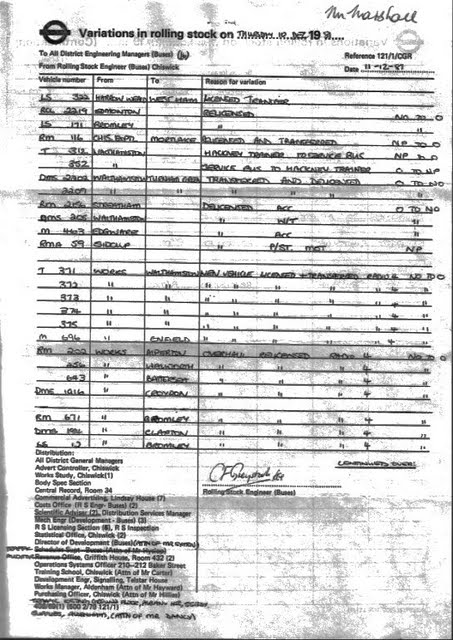 Mr Marshall
Variations in rolling stock on THURSDAY 10 DEC 19 81....
To All District Engineering Managers (Buses)
Reference 121/1/CGR
From Rolling Stock Engineer (Buses) Chiswick
Date 11-12-81
Vehicle number From To Reason for variation
LS 322 HARROW WEALD WEST HAM LICENSED TRANSFER
RCL 2219 EDMONTON RELICENSED NO TO O
LS 171 BROMLEY " "
RM 116 CHIS. EXPTL MORTLAKE RELICENSED AND TRANSFERRED NP TO O
T 312 WALTHAMSTOW HACKNEY TRAINER TO SERVICE BUS NP TO O
252 " SERVICE BUS TO HACKNEY TRAINER O TO NP
DMS 2202 WALTHAMSTOW TRANSFERRED AND DELICENSED O TO NO
2207 " " " " "
RM 2156 STREATHAM DELICENSED ACC O TO NO
BMS 205 WALTHAMSTOW " W/T "
M 4403 EDGWARE " ACC "
RMA 59 SIDCUP " P/ST. MGT NP
T 371 WORKS WALTHAMSTOW NEW VEHICLE LICENSED & TRANSFERRED RADIO 4 NO TO O
372 " " " " " " 4 "
373 " " " " " " 4 "
374 " " " " " " 4 "
375 " " " " " " 4 "
M 696 " ENFIELD " " " " 4 "
RM 202 WORKS ALPERTON OVERHAUL RELICENSED RADIO 4 NO TO O
256 " " " " 4 "
643 " BATTERSEA " " " 4 "
DMS 1016 " CROYDON " " " 4 "
RM 671 " BROMLEY " " " 4 "
DMS 1986 " CLAPTON " " " 4 "
LS 12 " BROMLEY " " " 4 "
CONTINUED OVER
Distribution:
All District General Managers
Advert Controller, Chiswick
Works Study, Chiswick(1)
Body Spec Section
Central Record, Room 34
Rolling Stock Engineer (Buses)
Commercial Advertising, Lindsay House (7)
Costs Office (R S Engr- Buses) (2)
Scientific Adviser (2), Distribution Services Manager
Mech Engr (Development - Buses) (3)
R S Licensing Section (6), R S Inspection
Statistical Office, Chiswick (2)
Director of Development (Buses)
Schedules Sept - Buses (Attn of Mr Hyslop)
Revenue Office, Griffith House, Room 432 (2)
Operations Systems Officer 210-212 Baker Street
Training School, Chiswick (Attn of Mr Carter)
Development Engr, Signalling, Telstar House
Works Manager, Aldenham (Attn of Mr Hayward)
Purchasing Officer, Chiswick (Attn of Mr Hillies)